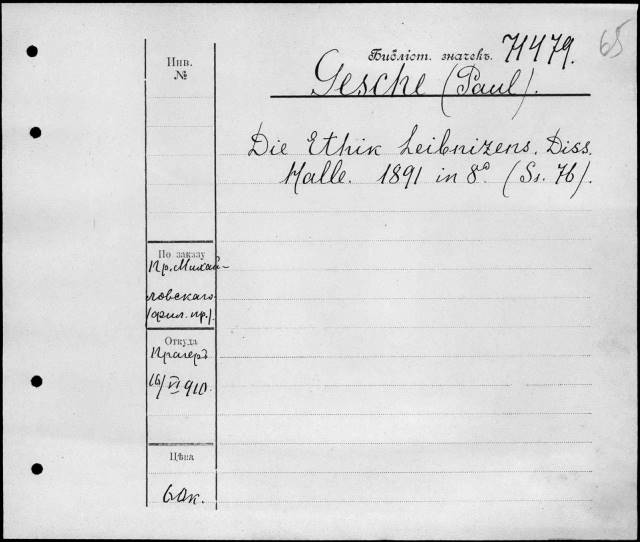 65
Библіот. значекъ. 71479.
Gesche (Paul).
Die Ethik Leibnizens. Diss.
Halle. 1891 in 8º. (Ss. 76).
Инв.
№
По заказу
Пр. Михай-
ловскаго
(фил. пр.).
Откуда
Прагеръ
16/VI 910.
Цѣна
60к.